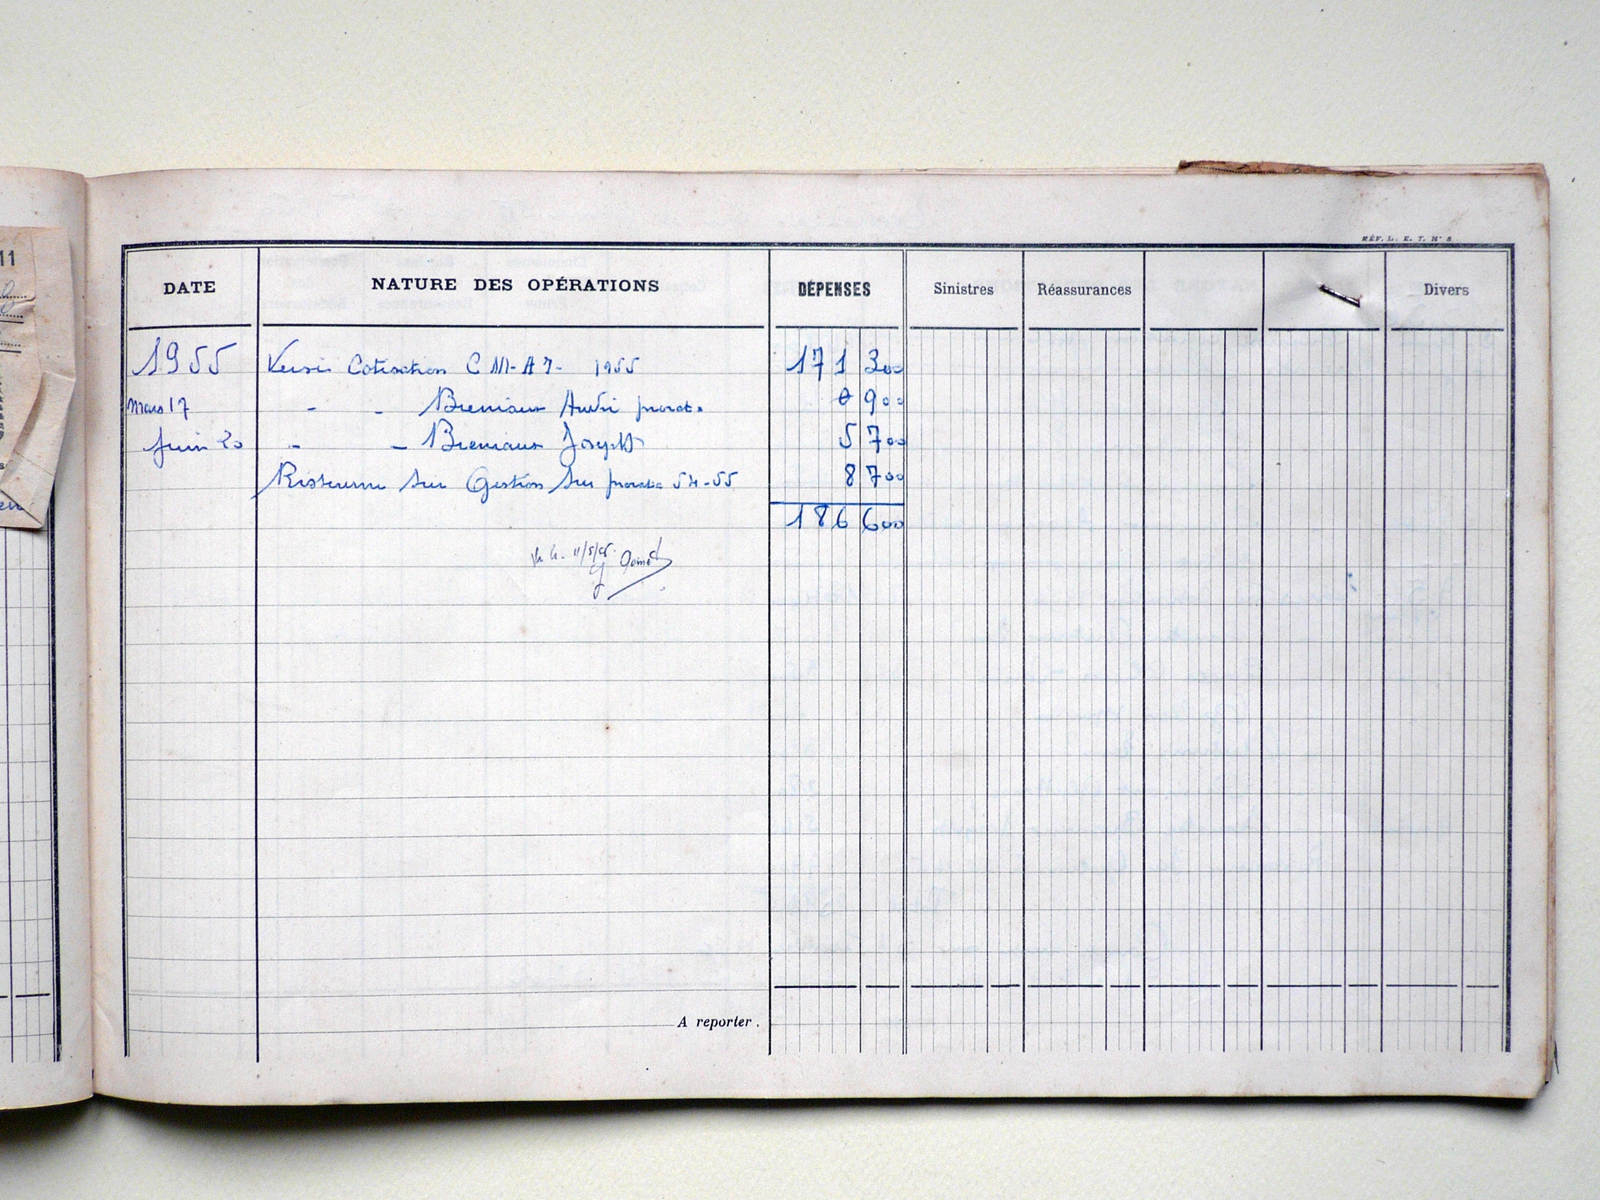 11
RÉF. L. E. T. N° 8
DATE NATURE DES OPÉRATIONS DÉPENSES Sinistres Réassurances Divers
1955 Versé Cotisation C M-A 7- 1955 171 300
Mars 17 - - André prorata 900
Juin 20 - - Joseph 5 700
Ristourne sur Gestion sur prorata 54-55 8 700
186 600
A reporter.